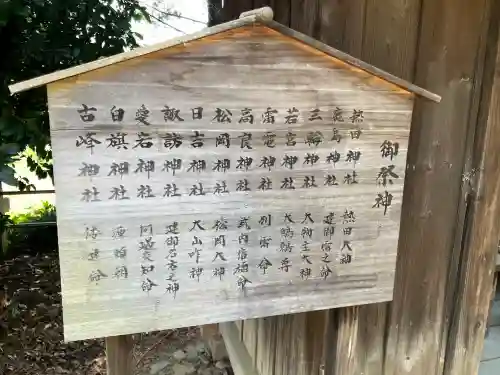 御祭神
熱田神社 熱田大神
鹿島神社 建御雷之神
三輪神社 大物主大神
若宮神社 大鷦鷯尊
雷電神社 別雷命
高良神社 武内宿禰命
松岡神社 松岡大神
日吉神社 大山咋神
諏訪神社 建御名方之神
愛宕神社 阿遇突知命
白旗神社 源頼朝
古峰神社